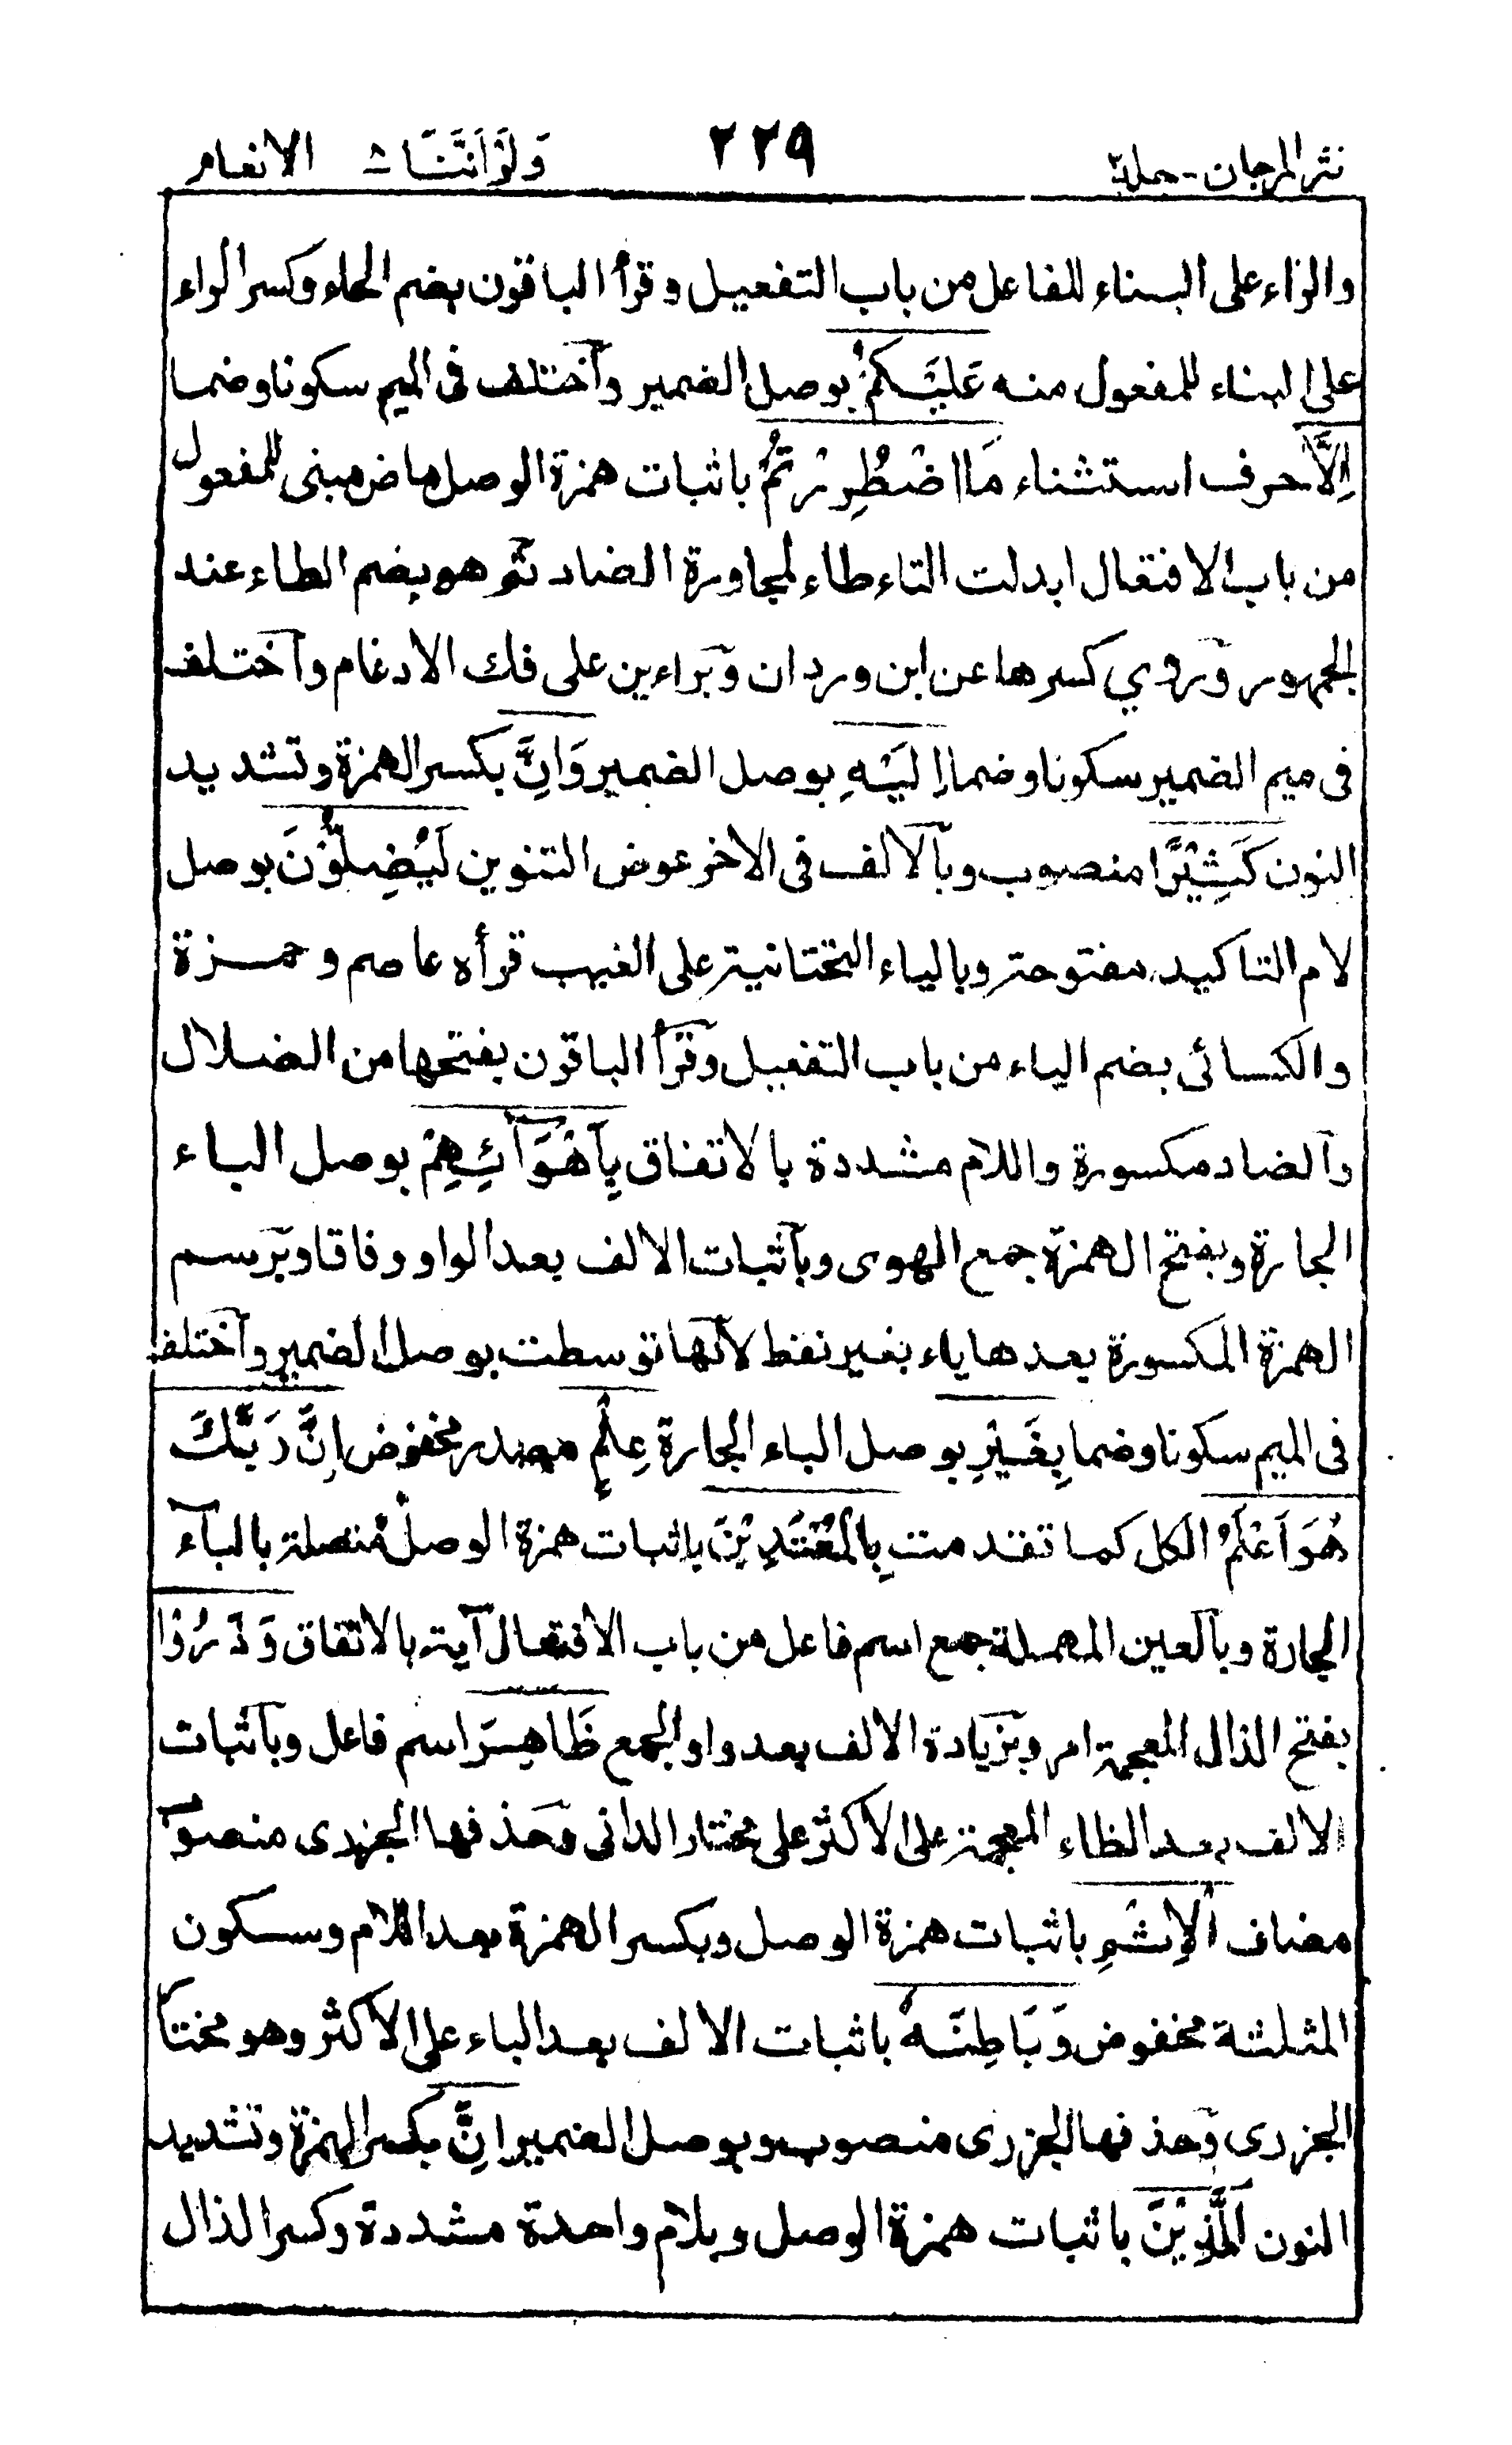 نثر المرجان - جلد٢ ٢٢٩ وَلَوْاَنَّنَا ٨ الانعام
والراء على البناء للفاعل من باب التفعيل وقرأ الباقون بضم الحاء وكسر الراء
على البناء للمفعول منه عَلَيْكُمْ بوصل الضمير وآختلف فى الميم سكونا وضما
اِلَّا حرف استثناء مَا اضْطُرِرْتُمْ باثبات همزة الوصل ماض مبنى للمفعول
من باب الافتعال ابدلت التاء طاء لمجاورة الضاد ثم هو بضم الطاء عند
الجمهور وروي كسرها عن ابن وردان وبراءين على فك الادغام وآختلف
فى ميم الضمير سكونا وضما اِلَيْهِ بوصل الضمير وَاِنَّ بكسر الهمزة وتشديد
النون كَثِيْرًا منصوب وبآلالف فى الاخر عوض التنوين لَيُضِلُّوْنَ بوصل
لام التاكيد مفتوحة وبالياء التحتانية على الغيب قرأه عاصم وحمزة
والكسائى بضم الياء من باب التفعيل وقرأ الباقون بفتحها من الضلال
وآلضاد مكسورة واللام مشددة بالاتفاق بِاَهْوَآئِهِمْ بوصل الباء
الجارة وبفتح الهمزة جمع الهوى وبآثبات الالف بعد الواو وفاقا وبرسم
الهمزة المكسورة بعدها ياء بغير نقط لآنها توسطت بوصل الضمير وآختلف
فى الميم سكونا وضما بِغَيْرِ بوصل الباء الجارة عِلْمٍ مصدر مخفوض اِنَّ رَبَّكَ
هُوَ اَعْلَمُ الكل كما تقدمت بِالْمُعْتَدِيْنَ باثبات همزة الوصل متصلة بالباء
الجارة وبآلعين المهملة جمع اسم فاعل من باب الافتعال آية بالاتفاق وَذَرُوْا
بفتح الذال المعجمة امر وبزيادة الالف بعد واو الجمع ظَاهِرَ اسم فاعل وبآثبات
الالف بعد الظاء المعجمة على الاكثر على مختار الدانى وحذفها الجزرى منصوب
مضاف الْاِثْمِ باثبات همزة الوصل وبكسر الهمزة بعد اللام وسكون
المثلثة مخفوض وَبَاطِنَهُ باثبات الالف بعد الباء على الاكثر وهو مختا
الجزرى وحذفها الجزرى منصوب وبوصل الضمير اِنَّ بكسر الهمزة وتشديد
النون اَلَّذِيْنَ باثبات همزة الوصل وبلام واحدة مشددة وكسر الذال